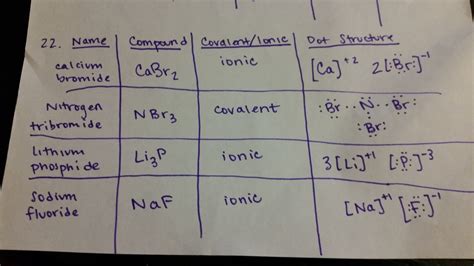 22. Name Compound Covalent/Ionic Dot Structure
calcium bromide CaBr₂ ionic [Ca]⁺² 2[:B̤̈r:]⁻¹
Nitrogen tribromide NBr₃ covalent :B̤̈r··N̈··B̤̈r:
:B̤r:
Lithium phosphide Li₃P ionic 3[Li]⁺¹ [:P̤̈:]⁻³
Sodium fluoride NaF ionic [Na]⁺¹ [:F̤̈:]⁻¹